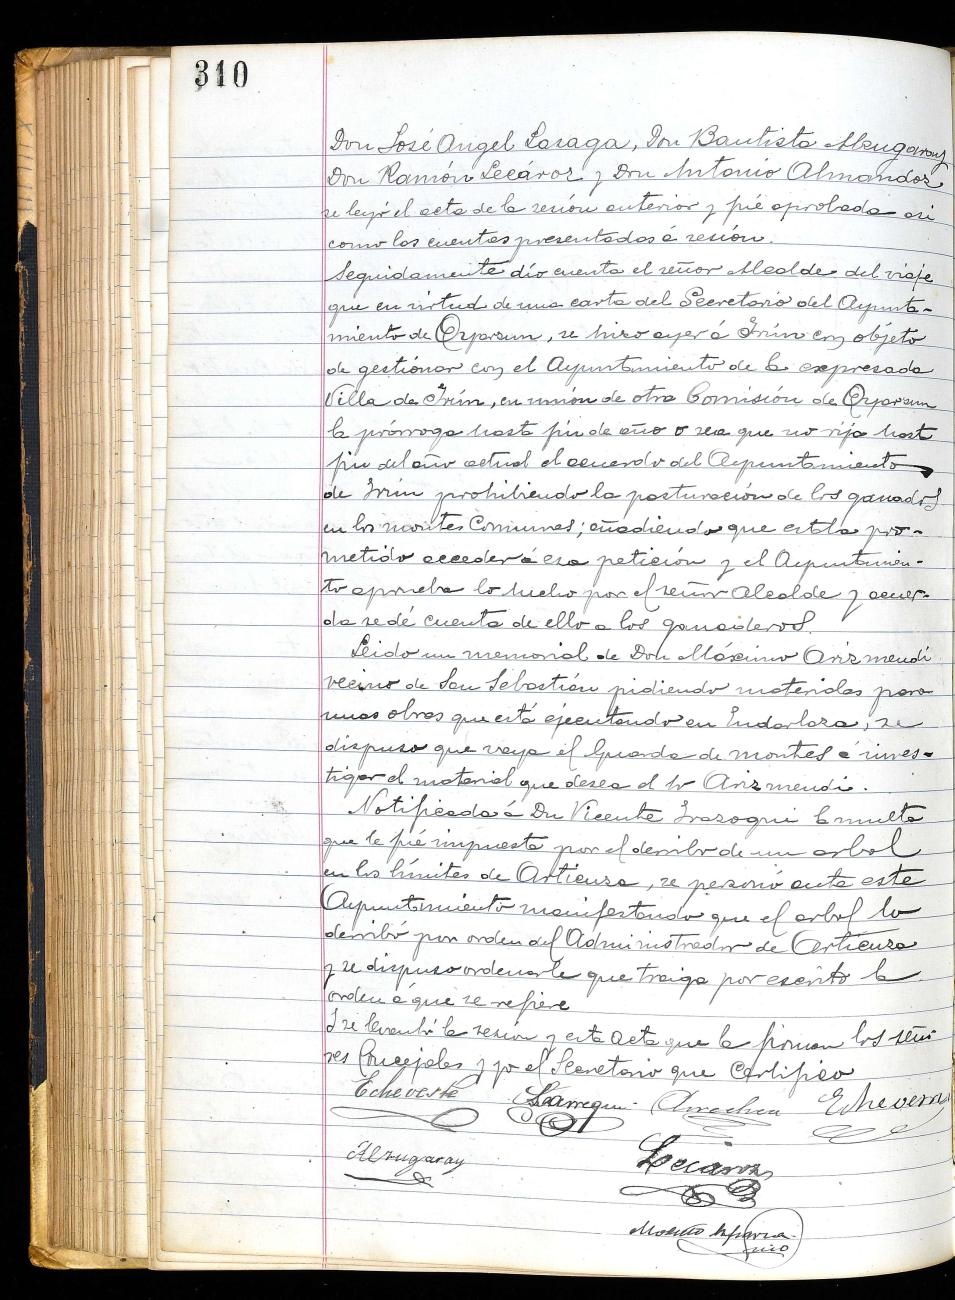 310
Don José Angel Lasaga, Don Bautista Alzugaray
Don Ramón Lecároz y Don Antonio Almandoz
se leyó el acta de la sesión anterior y fué aprobada asi
como las cuentas presentadas á sesión.
Seguidamente dió cuenta el señor Alcalde del viaje
que en virtud de una carta del Secretario del Ayunta-
miento de Oyarzun, se hizo ayer á Irún con objeto
de gestionar con el Ayuntamiento de la expresada
Villa de Irún, en unión de otra Comisión de Oyarzun
la prórroga hasta fin de año o sea que no rija hasta
fin del año actual el acuerdo del Ayuntamiento
de Irún prohibiendo la pasturación de los ganados
en los montes Comunes; añadiendo que está pro-
metido acceder á esa petición y el Ayuntamien-
to aprueba lo hecho por el señor Alcalde y acuer-
da se dé cuenta de ello a los ganaderos.
Leido un memorial de Don Máximo Arizmendi
vecino de San Sebastián pidiendo materiales para
unas obras que está ejecutando en Endarlaza, se
dispuso que vaya el Guarda de montes á inves-
tigar el material que desea el Sr Arizmendi.
Notificada á Dn Vicente Irazoqui la multa
que le fué impuesta por el derribo de un arbol
en los límites de Articuza, se personó ante este
Ayuntamiento manifestando que el arbol lo
derribó por orden del Administrador de Articuza
y se dispuso ordenarle que traiga por escrito la
orden á que se refiere
Y se levantó la sesión y esta acta que la firman los seño
res Concejales y yo el Secretario que Certifico
Echeveste Echeverria
Alzugaray Lecaroz